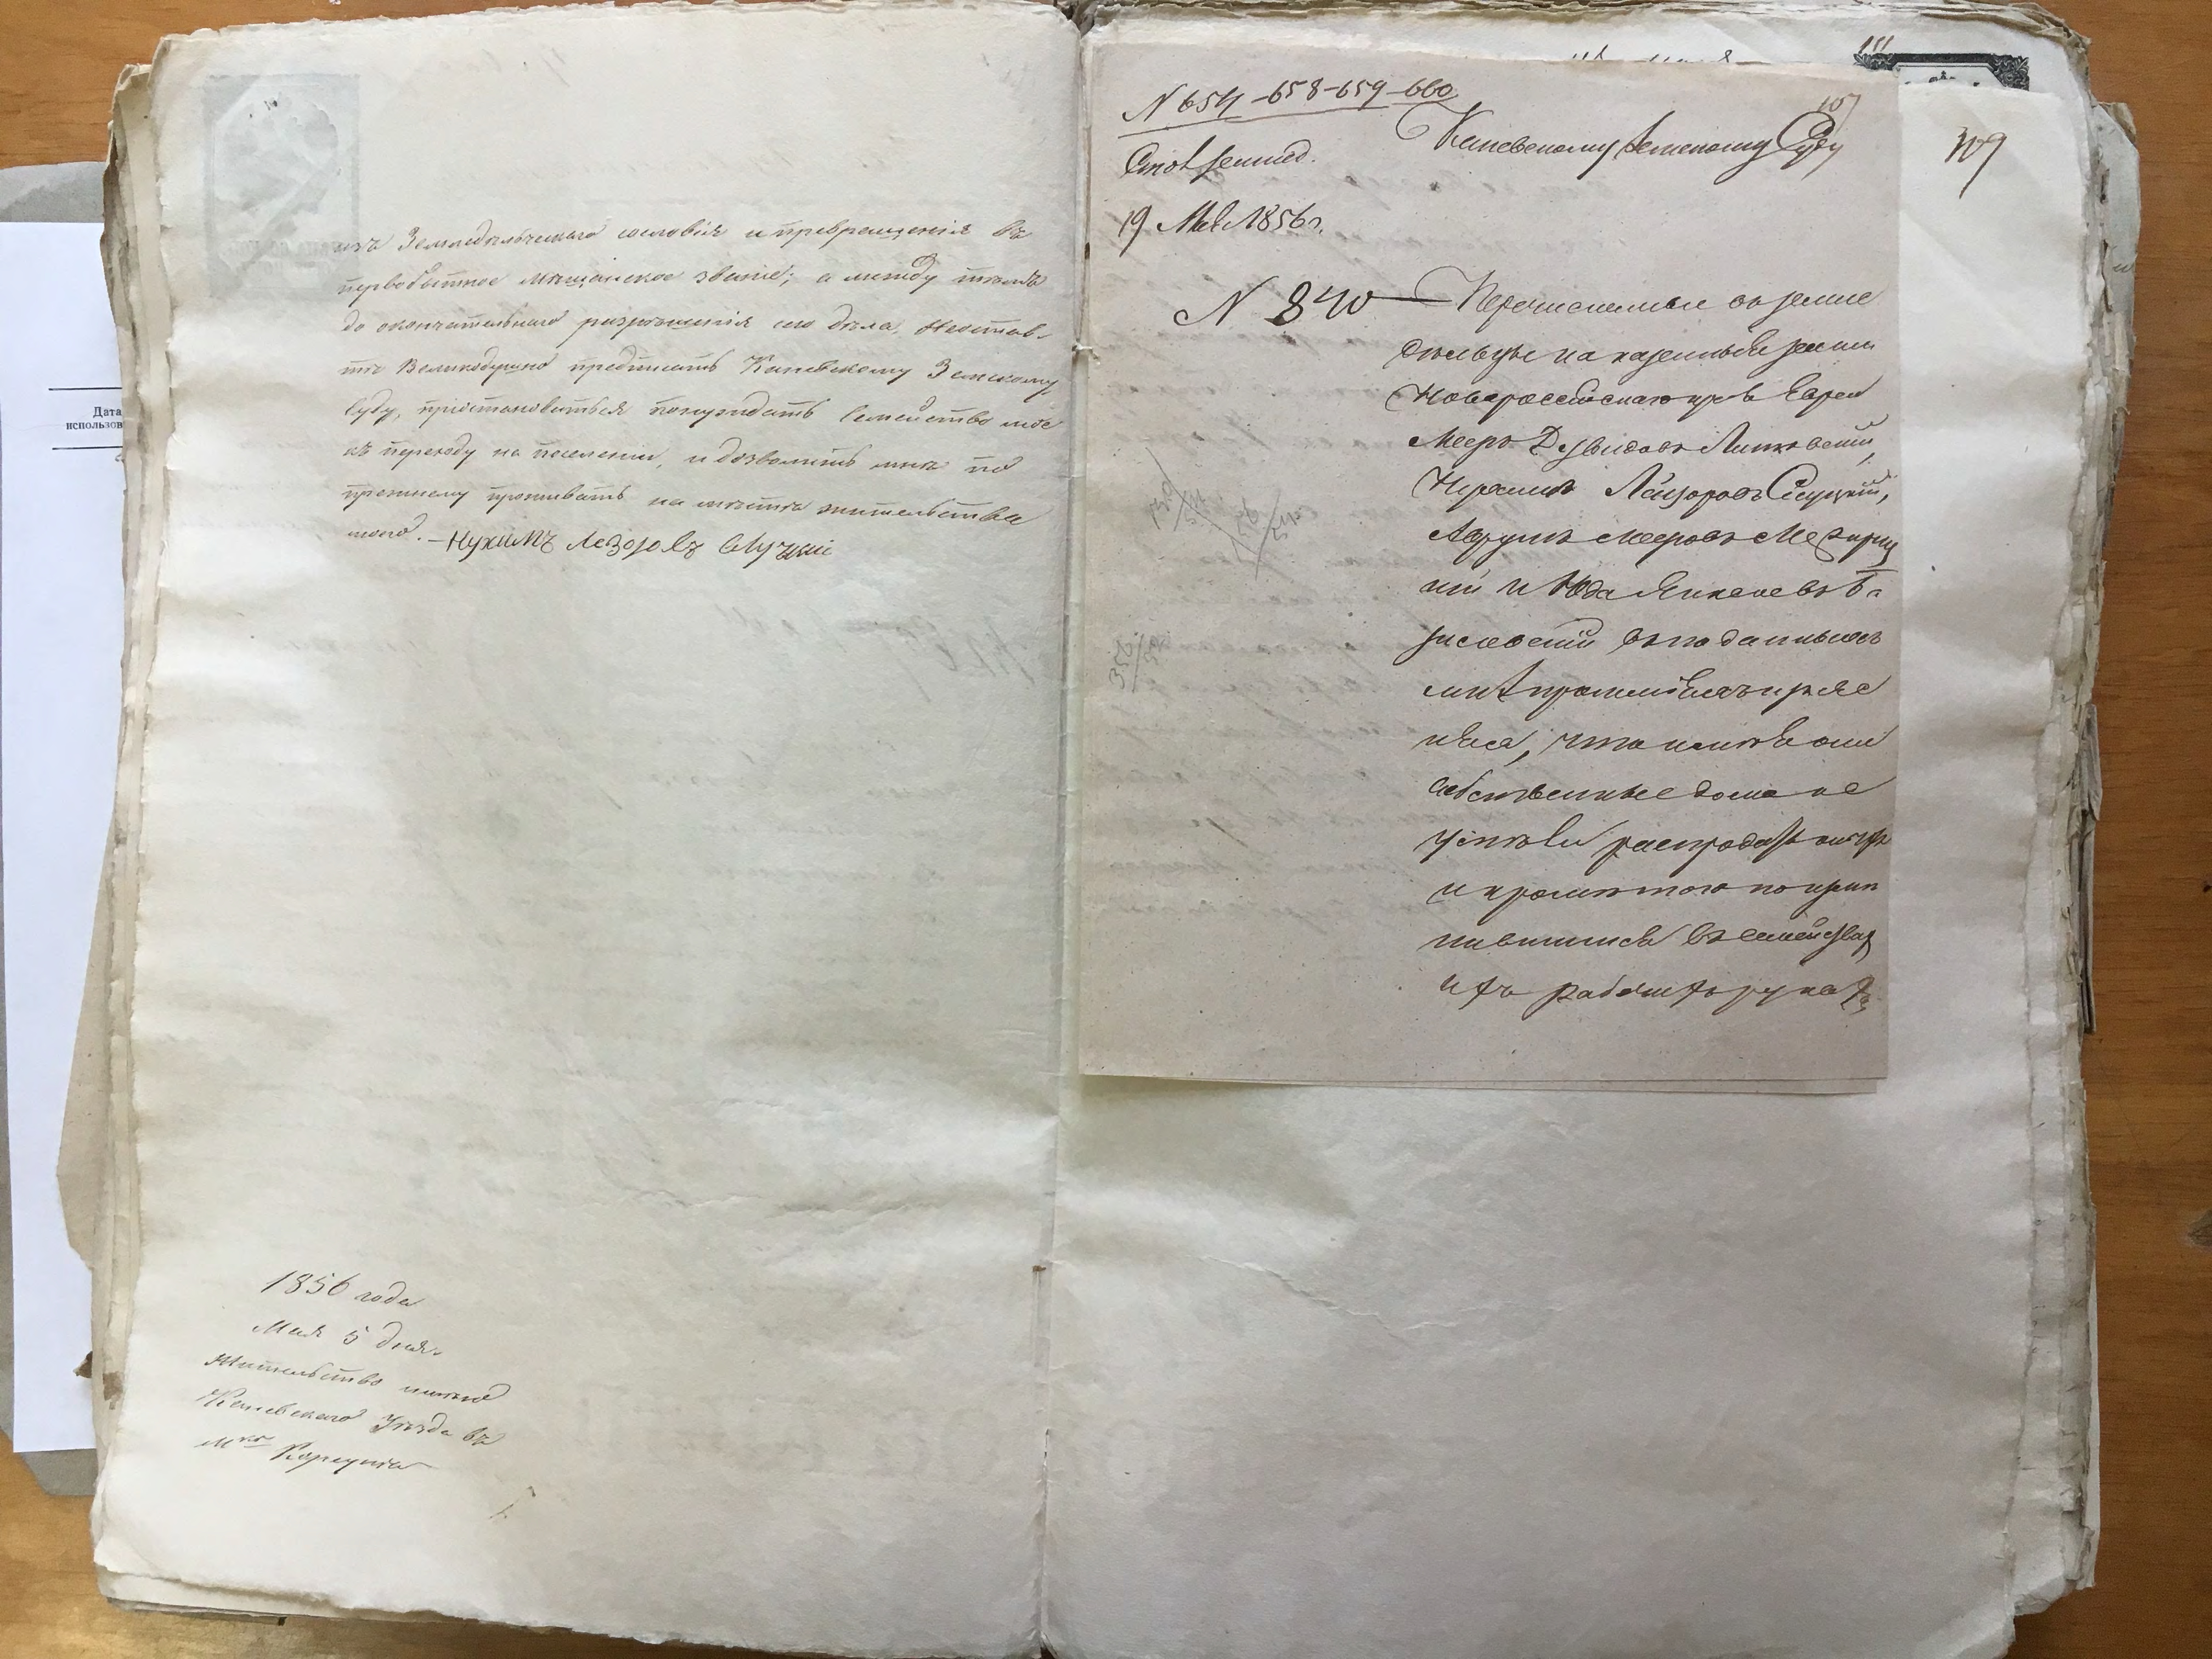 изъ Земледѣльческаго сословія и превращенія въ
первобытное мѣщанское званіе; а между тѣмъ
до окончательнаго разрѣшенія сего дѣла, неостав-
те Великодушно предписать Каневскому Земскому
Суду, пріостановиться понуждать Семейство мое
къ переходу на поселеніи, и дозволить мнѣ по
прежнему проживать на мѣстѣ жительства
моего. — Нухимъ Лезоровъ Слуцкій
1856 года
Мая 5 дня.
Жительство имѣю
Каневскаго Уѣзда въ
Мко Корсунѣ
Дата
использов
N 654-658-659-660
107
Каневскому Земскому Суду
109
19 Мая 1856 г.
N 840 — Перечисленные въ земле
дѣльцы на казенныя земли
Новороссійскаго края Евреи
Мееръ Дувидовъ Липковскій,
Нухимъ Лейзоровъ Слуцкій,
Аврумъ Мееровъ Межириц
кій и Юда Янкелевъ Бо
гуславскій въ поданныхъ
мнѣ прошеніяхъ изъяс
няя, что имѣя они
собственные дома не
успѣли распродать оныхъ
и кромѣ того по при
чинѣ въ семействахъ
ихъ рабочихъ рукахъ